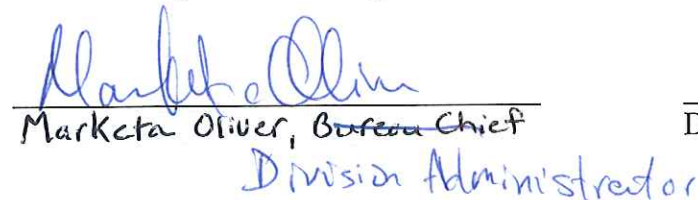 Marketa Oliver
Marketa Oliver, Bureau Chief D
Division Administrator